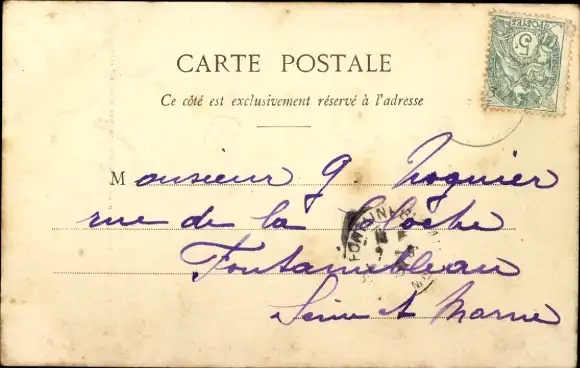 CARTE POSTALE
Ce côté est exclusivement réservé à l'adresse
Monsieur G Noguier
rue de la Cloche
Fontainebleau
Seine et Marne
5c
POSTES
FONTAINEBLEAU